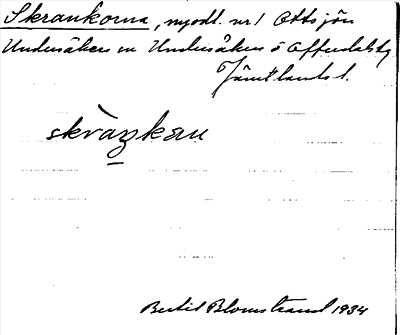 Skrankorna, nyodl. nr 1 Ottsjön
Undersåkers sn Undersåkers o Offerdals tg
Jämtlands l.
skràŋkaṇ
Bertil Blomstrand 1934